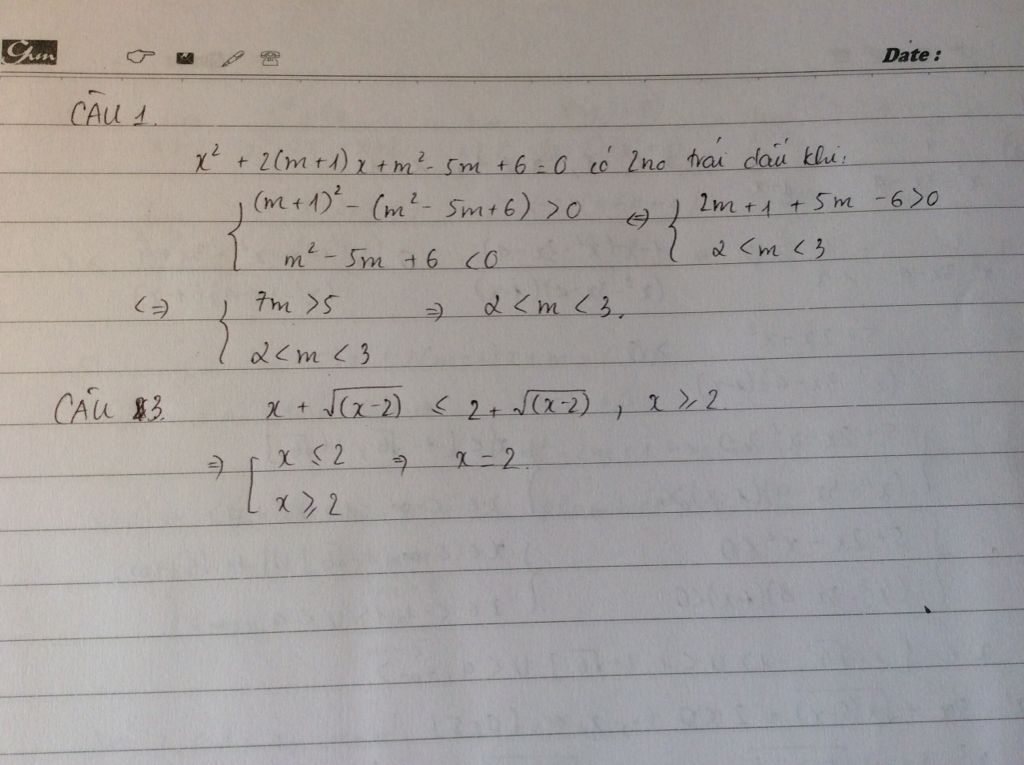 Chun
Date :
CÂU 1.
x² + 2(m+1)x + m² - 5m + 6 = 0 có 2no trái dấu khi:
{ (m+1)² - (m² - 5m+6) > 0 <=> { 2m+1 + 5m - 6 > 0
m² - 5m + 6 < 0 2 < m < 3
<=> { 7m > 5 => 2 < m < 3.
2 < m < 3
CÂU 3. x + √(x-2) ≤ 2 + √(x-2) , x ≥ 2
=> [ x ≤ 2 => x = 2.
x ≥ 2